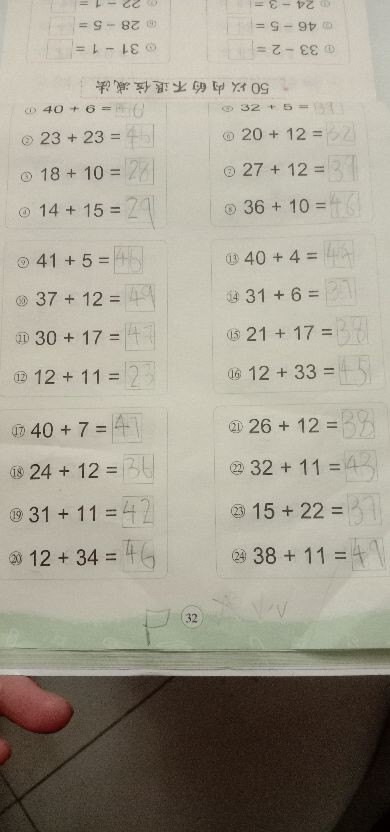 50以内的不退位减法
① 33 - 2 =
31 - 1 =
46 - 5 =
28 - 5 =
24 - 3 =
22 - 1 =
① 40 + 6 = 46
⑤ 32 + 5 = 37
② 23 + 23 = 46
⑥ 20 + 12 = 32
③ 18 + 10 = 28
⑦ 27 + 12 = 39
④ 14 + 15 = 29
⑧ 36 + 10 = 46
⑨ 41 + 5 = 46
⑬ 40 + 4 = 44
⑩ 37 + 12 = 49
⑭ 31 + 6 = 37
⑪ 30 + 17 = 47
⑮ 21 + 17 = 38
⑫ 12 + 11 = 23
⑯ 12 + 33 = 45
⑰ 40 + 7 = 47
㉑ 26 + 12 = 38
⑱ 24 + 12 = 36
㉒ 32 + 11 = 43
⑲ 31 + 11 = 42
㉓ 15 + 22 = 37
⑳ 12 + 34 = 46
㉔ 38 + 11 = 49
32